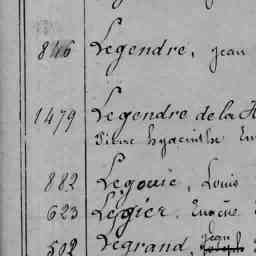 846 Legendre, Jean
1479 Legendre de la
Pierre Hyacinthe
882 Legouic, Louis
623 Légier, Eugène
502 Legrand, Jean
Joseph